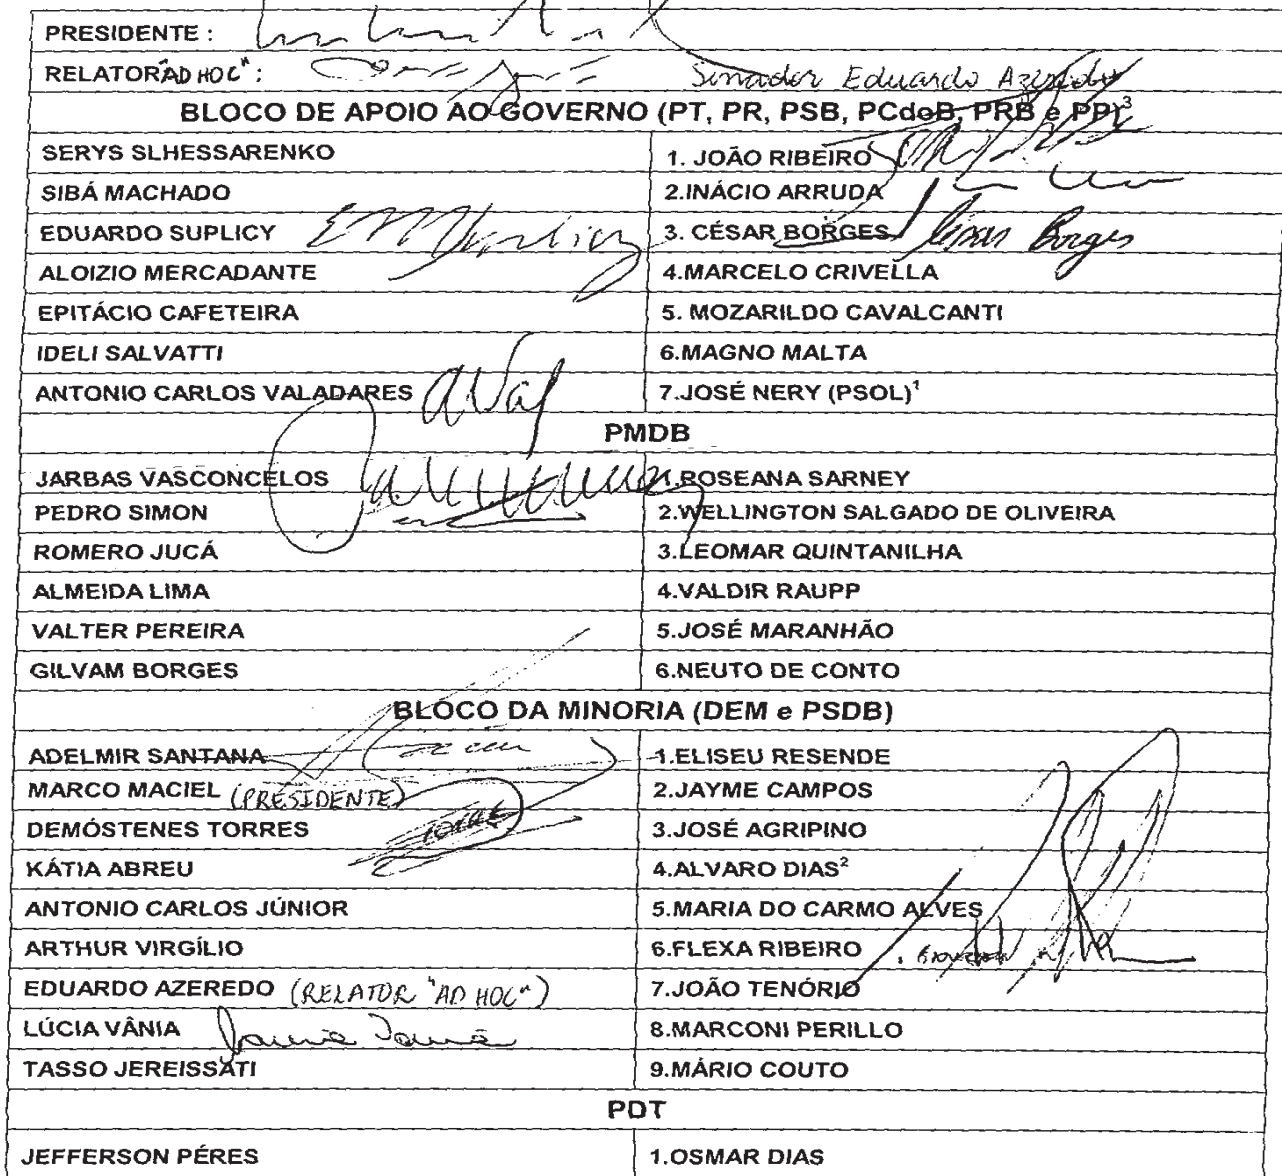 PRESIDENTE :
RELATOR "AD HOC" : Senador Eduardo Azeredo
BLOCO DE APOIO AO GOVERNO (PT, PR, PSB, PCdoB, PRB e PP)³
SERYS SLHESSARENKO 1. JOÃO RIBEIRO
SIBÁ MACHADO 2.INÁCIO ARRUDA
EDUARDO SUPLICY 3. CÉSAR BORGES César Borges
ALOIZIO MERCADANTE 4.MARCELO CRIVELLA
EPITÁCIO CAFETEIRA 5. MOZARILDO CAVALCANTI
IDELI SALVATTI 6.MAGNO MALTA
ANTONIO CARLOS VALADARES 7.JOSÉ NERY (PSOL)¹
PMDB
JARBAS VASCONCELOS 1.ROSEANA SARNEY
PEDRO SIMON 2.WELLINGTON SALGADO DE OLIVEIRA
ROMERO JUCÁ 3.LEOMAR QUINTANILHA
ALMEIDA LIMA 4.VALDIR RAUPP
VALTER PEREIRA 5.JOSÉ MARANHÃO
GILVAM BORGES 6.NEUTO DE CONTO
BLOCO DA MINORIA (DEM e PSDB)
ADELMIR SANTANA 1.ELISEU RESENDE
MARCO MACIEL (PRESIDENTE) 2.JAYME CAMPOS
DEMÓSTENES TORRES 3.JOSÉ AGRIPINO
KÁTIA ABREU 4.ALVARO DIAS²
ANTONIO CARLOS JÚNIOR 5.MARIA DO CARMO ALVES
ARTHUR VIRGÍLIO 6.FLEXA RIBEIRO
EDUARDO AZEREDO (RELATOR "AD HOC") 7.JOÃO TENÓRIO
LÚCIA VÂNIA 8.MARCONI PERILLO
TASSO JEREISSATI 9.MÁRIO COUTO
PDT
JEFFERSON PÉRES 1.OSMAR DIAS